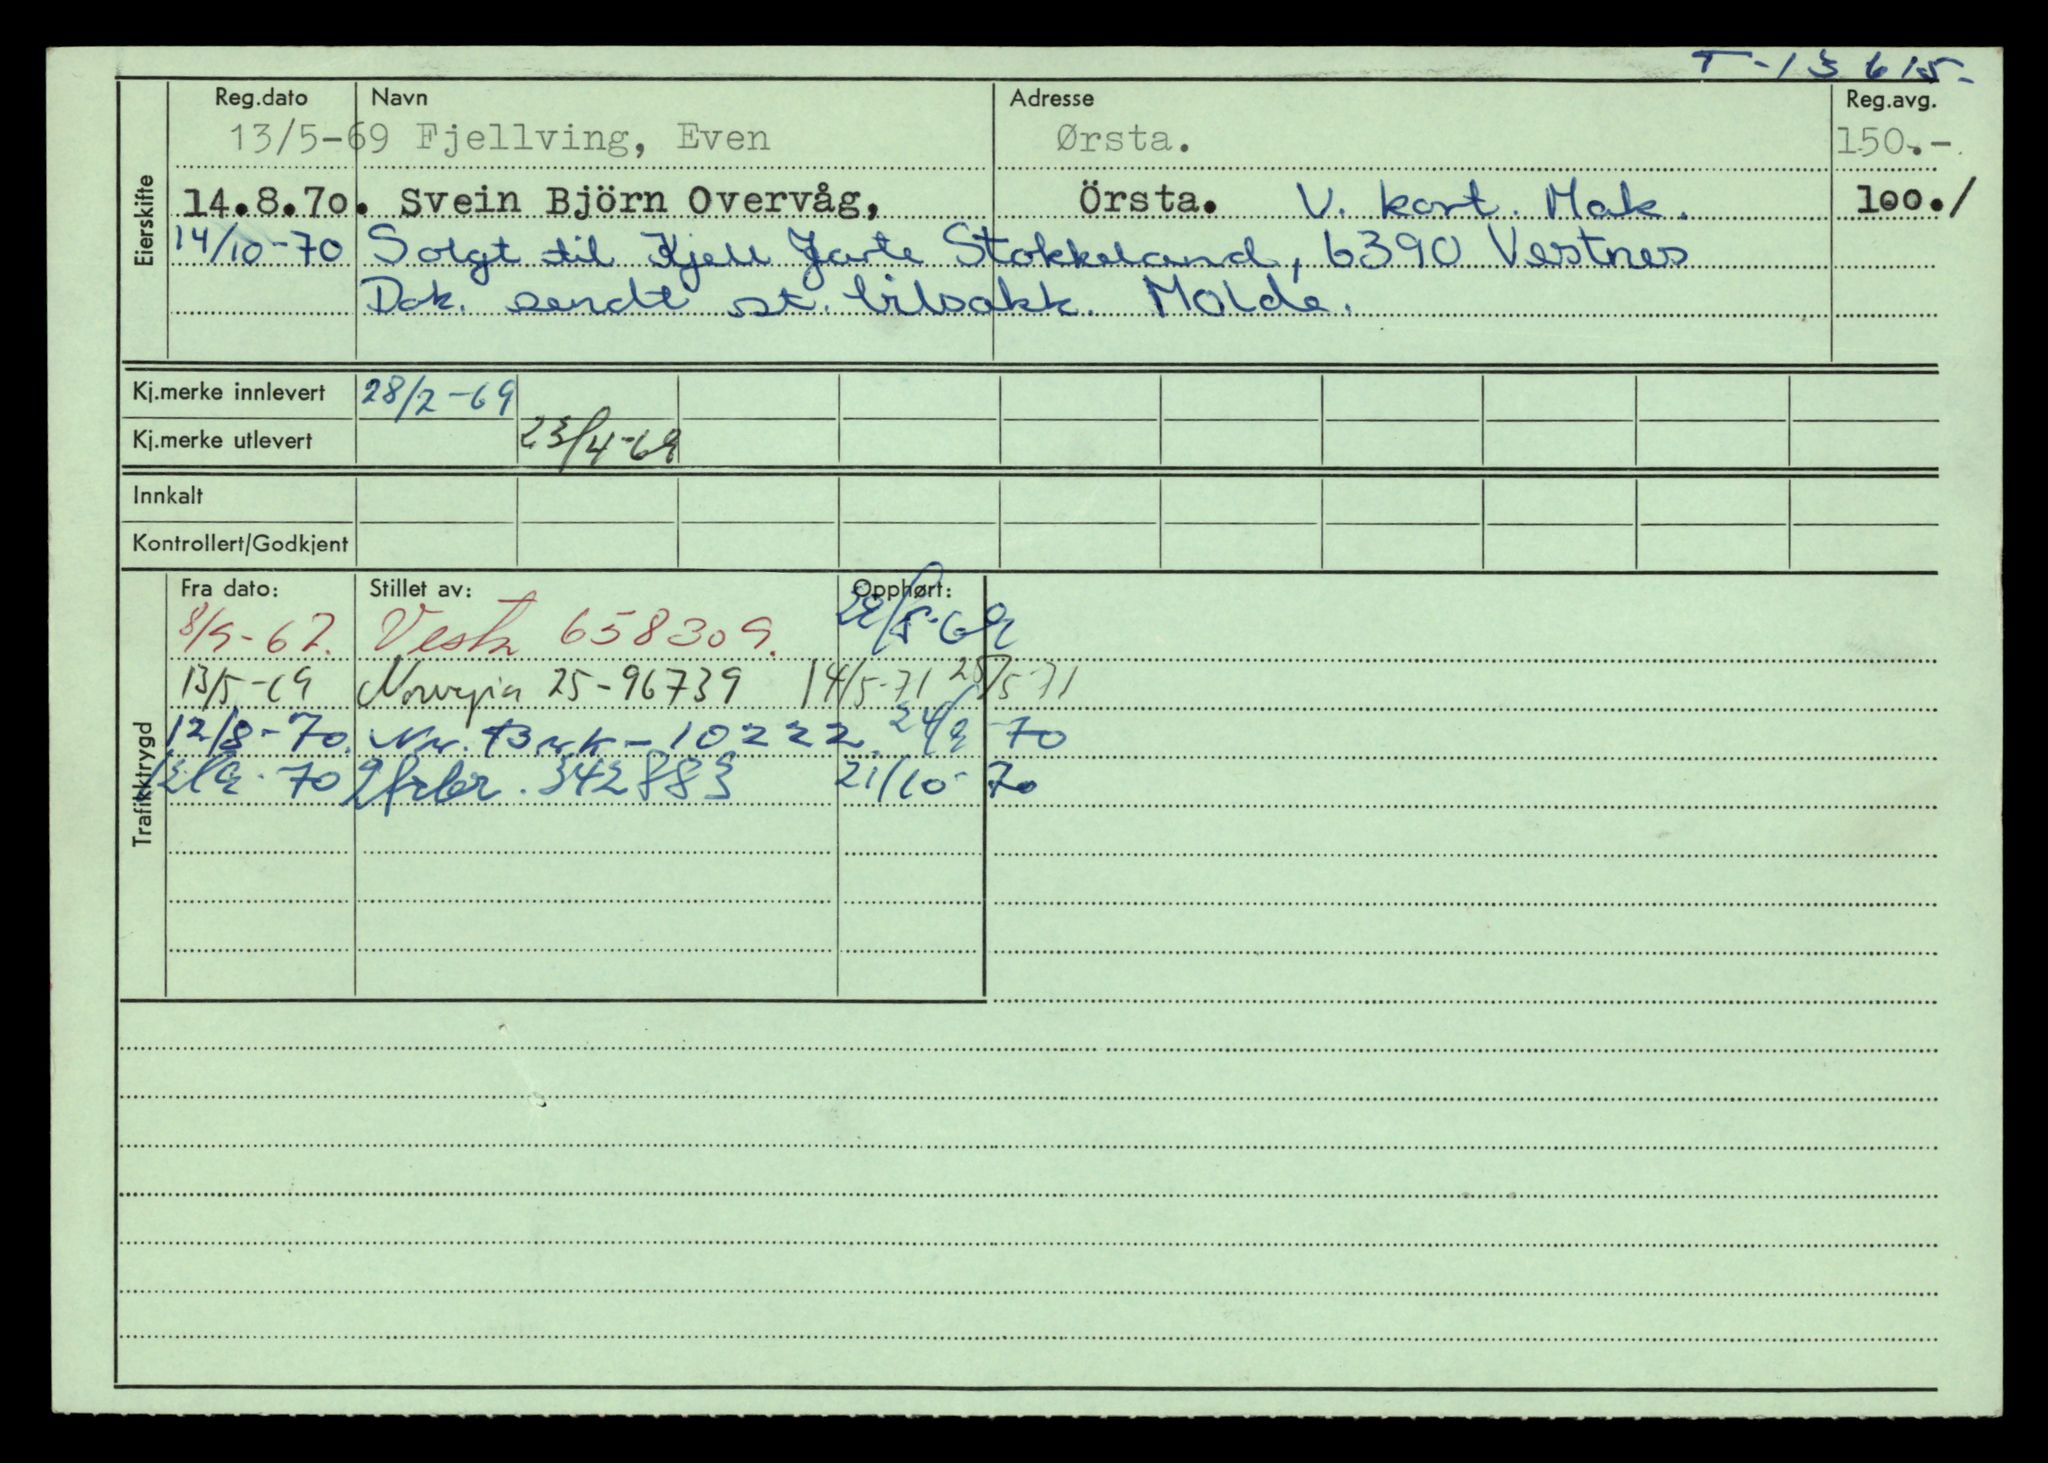 T-13615-
Reg.dato Navn Adresse Reg.avg.
13/5-69 Fjellving, Even Ørsta. 150.-
Eierskifte
14.8.70. Svein Björn Overvåg, Örsta. V. kort. Mak. 100./
14/10-70 Solgt til Kjell Jarte Stokkeland, 6390 Vestnes
Dok. sendt st. bilsakk. Molde.
Kj.merke innlevert 28/2-69
Kj.merke utlevert 23/4-69
Innkalt
Kontrollert/Godkjent
Trafikktrygd
Fra dato: Stillet av: Opphørt:
8/9-67. Vesta 658309.
13/5-69 Norvegia 25-96739 14/5-71 25/5-71
12/8-70. 10222. 24/9 70
70 342883 21/10-70